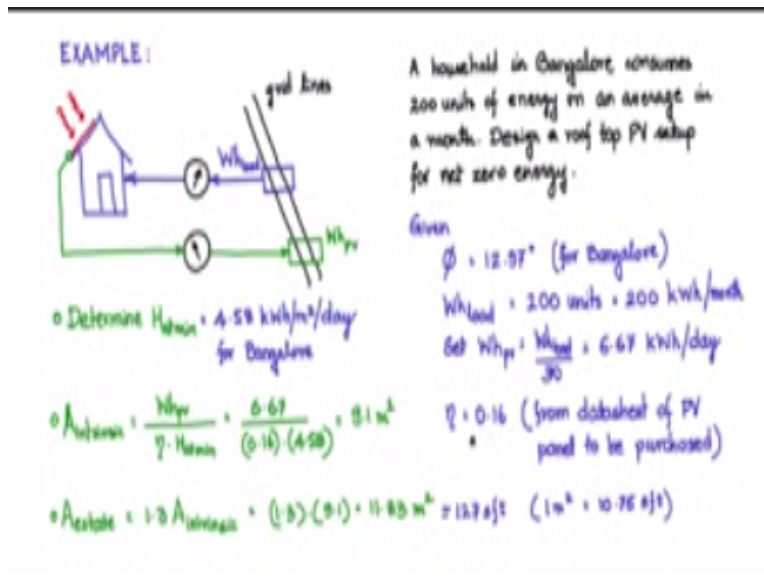 EXAMPLE:
grid lines
Wh load
Wh pv
A household in Bangalore consumes
200 units of energy on an average in
a month. Design a roof top PV setup
for net zero energy.
Given
φ = 12.97° (for Bangalore)
Wh load = 200 units = 200 kWh/month
Set Wh pv = Wh load / 30 = 6.67 kWh/day
η = 0.16 (from datasheet of PV
panel to be purchased)
o Determine H atmin = 4.58 kWh/m²/day
for Bangalore
o A intrinsic = Wh pv / η · H atmin = 6.67 / (0.16)·(4.58) = 9.1 m²
• A estate = 1.3 A intrinsic = (1.3)·(9.1) = 11.83 m² = 127 sft (1m² = 10.76 sft)